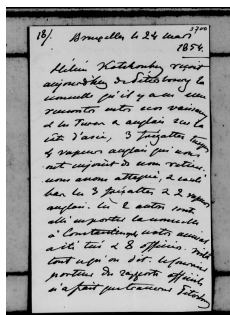 18/. Bruxelles le 24 mars
3700
1854.
Hélène Kotchoubey reçoit
aujourd'hui de Petersbourg la
nouvelle qu'il y a eu une
rencontre entre nos vaisseaux
& les Turcs & anglais sur la
côte d'asie, 3 frégattes turques
4 vapeurs anglais qui nous
ont enjoint de nous retirer.
nous avons attaqué, & coulé
bas les 3 frégattes & 2 vapeurs
anglais. les 2 autres sont
allé porter la nouvelle
à Constantinople, notre amiral
a été tué & 8 officiers. voilà
tout ce qu'on dit. le
porteur de rapports officiels
n'a fait que traverser